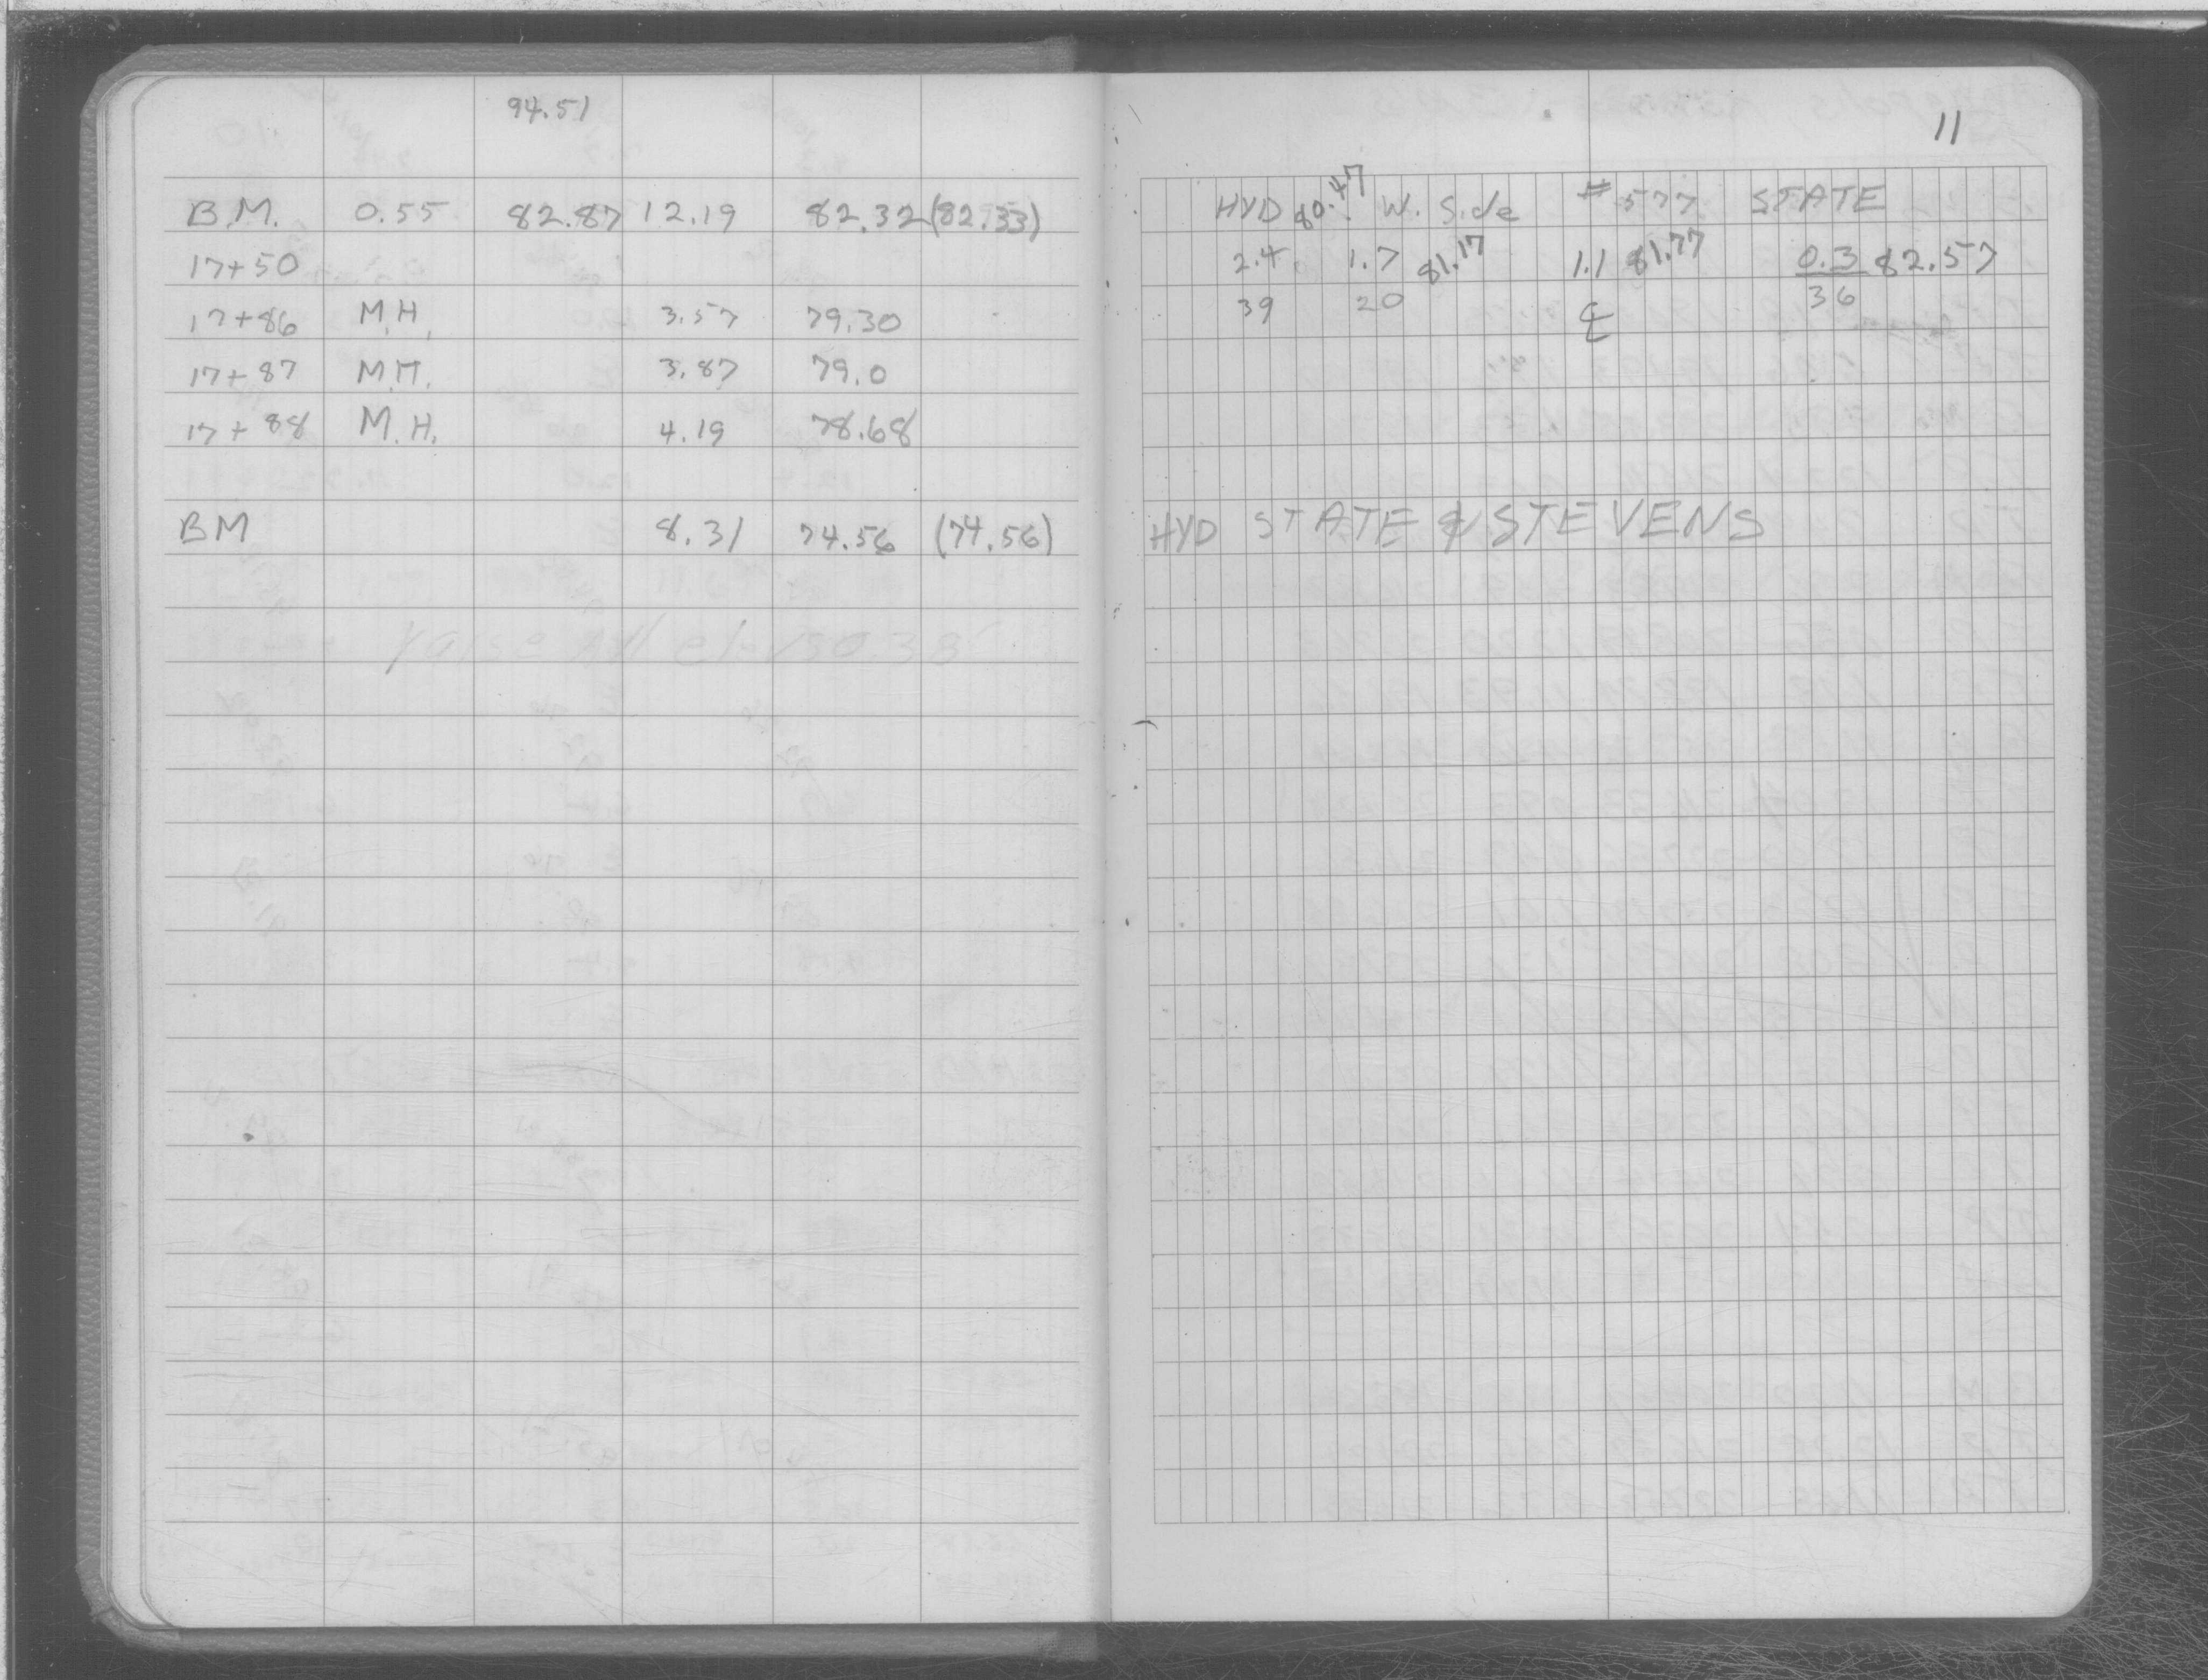 94.51
B.M. 0.55 82.87 12.19 82.32 (82.33)
17+50
17+86 M.H. 3.57 79.30
17+87 M.H. 3.87 79.0
17+88 M.H. 4.19 78.68
BM 8.31 74.56 (74.56)
raise All el. 130.38
11
HYD 80.47 W. Side # 577 STATE
2.4 1.7 81.17 1.1 81.77 0.3 82.57
39 20 ℄ 36
HYD STATE & STEVENS